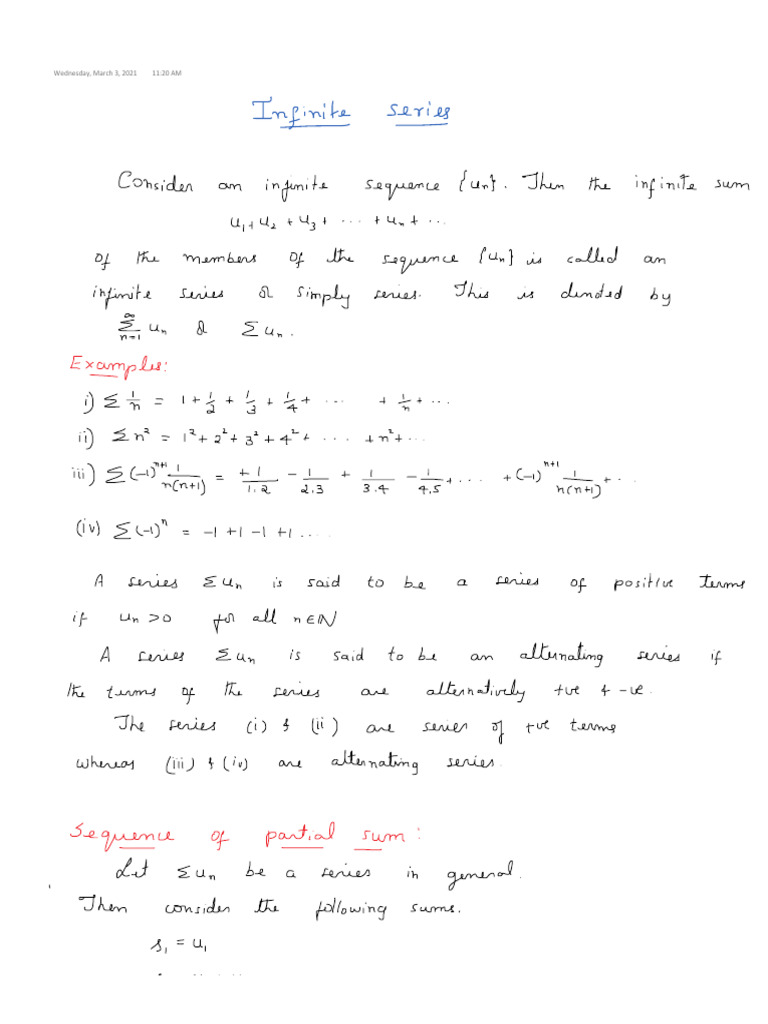 Wednesday, March 3, 2021 11:20 AM
Infinite series
Consider an infinite sequence {uₙ}. Then the infinite sum
u₁ + u₂ + u₃ + ··· + uₙ + ···
of the members of the sequence {uₙ} is called an
infinite series or simply series. This is denoted by
∞∑n=1 uₙ or ∑uₙ.
Examples:
i) ∑ 1/n = 1 + 1/2 + 1/3 + 1/4 + ··· + 1/n + ···
ii) ∑n² = 1² + 2² + 3² + 4² + ··· + n² + ···
iii) ∑(-1)ⁿ⁺¹ 1/n(n+1) = +1/1.2 - 1/2.3 + 1/3.4 - 1/4.5 + ··· + (-1)ⁿ⁺¹ 1/n(n+1) + ···
(iv) ∑(-1)ⁿ = -1 +1 -1 +1 ....
A series ∑uₙ is said to be a series of positive terms
if uₙ > 0 for all n∈ℕ
A series ∑uₙ is said to be an alternating series if
the terms of the series are alternatively +ve & -ve.
The series (i) & (ii) are series of +ve terms
whereas (iii) & (iv) are alternating series.
Sequence of partial sum:
Let ∑uₙ be a series in general.
Then consider the following sums.
s₁ = u₁